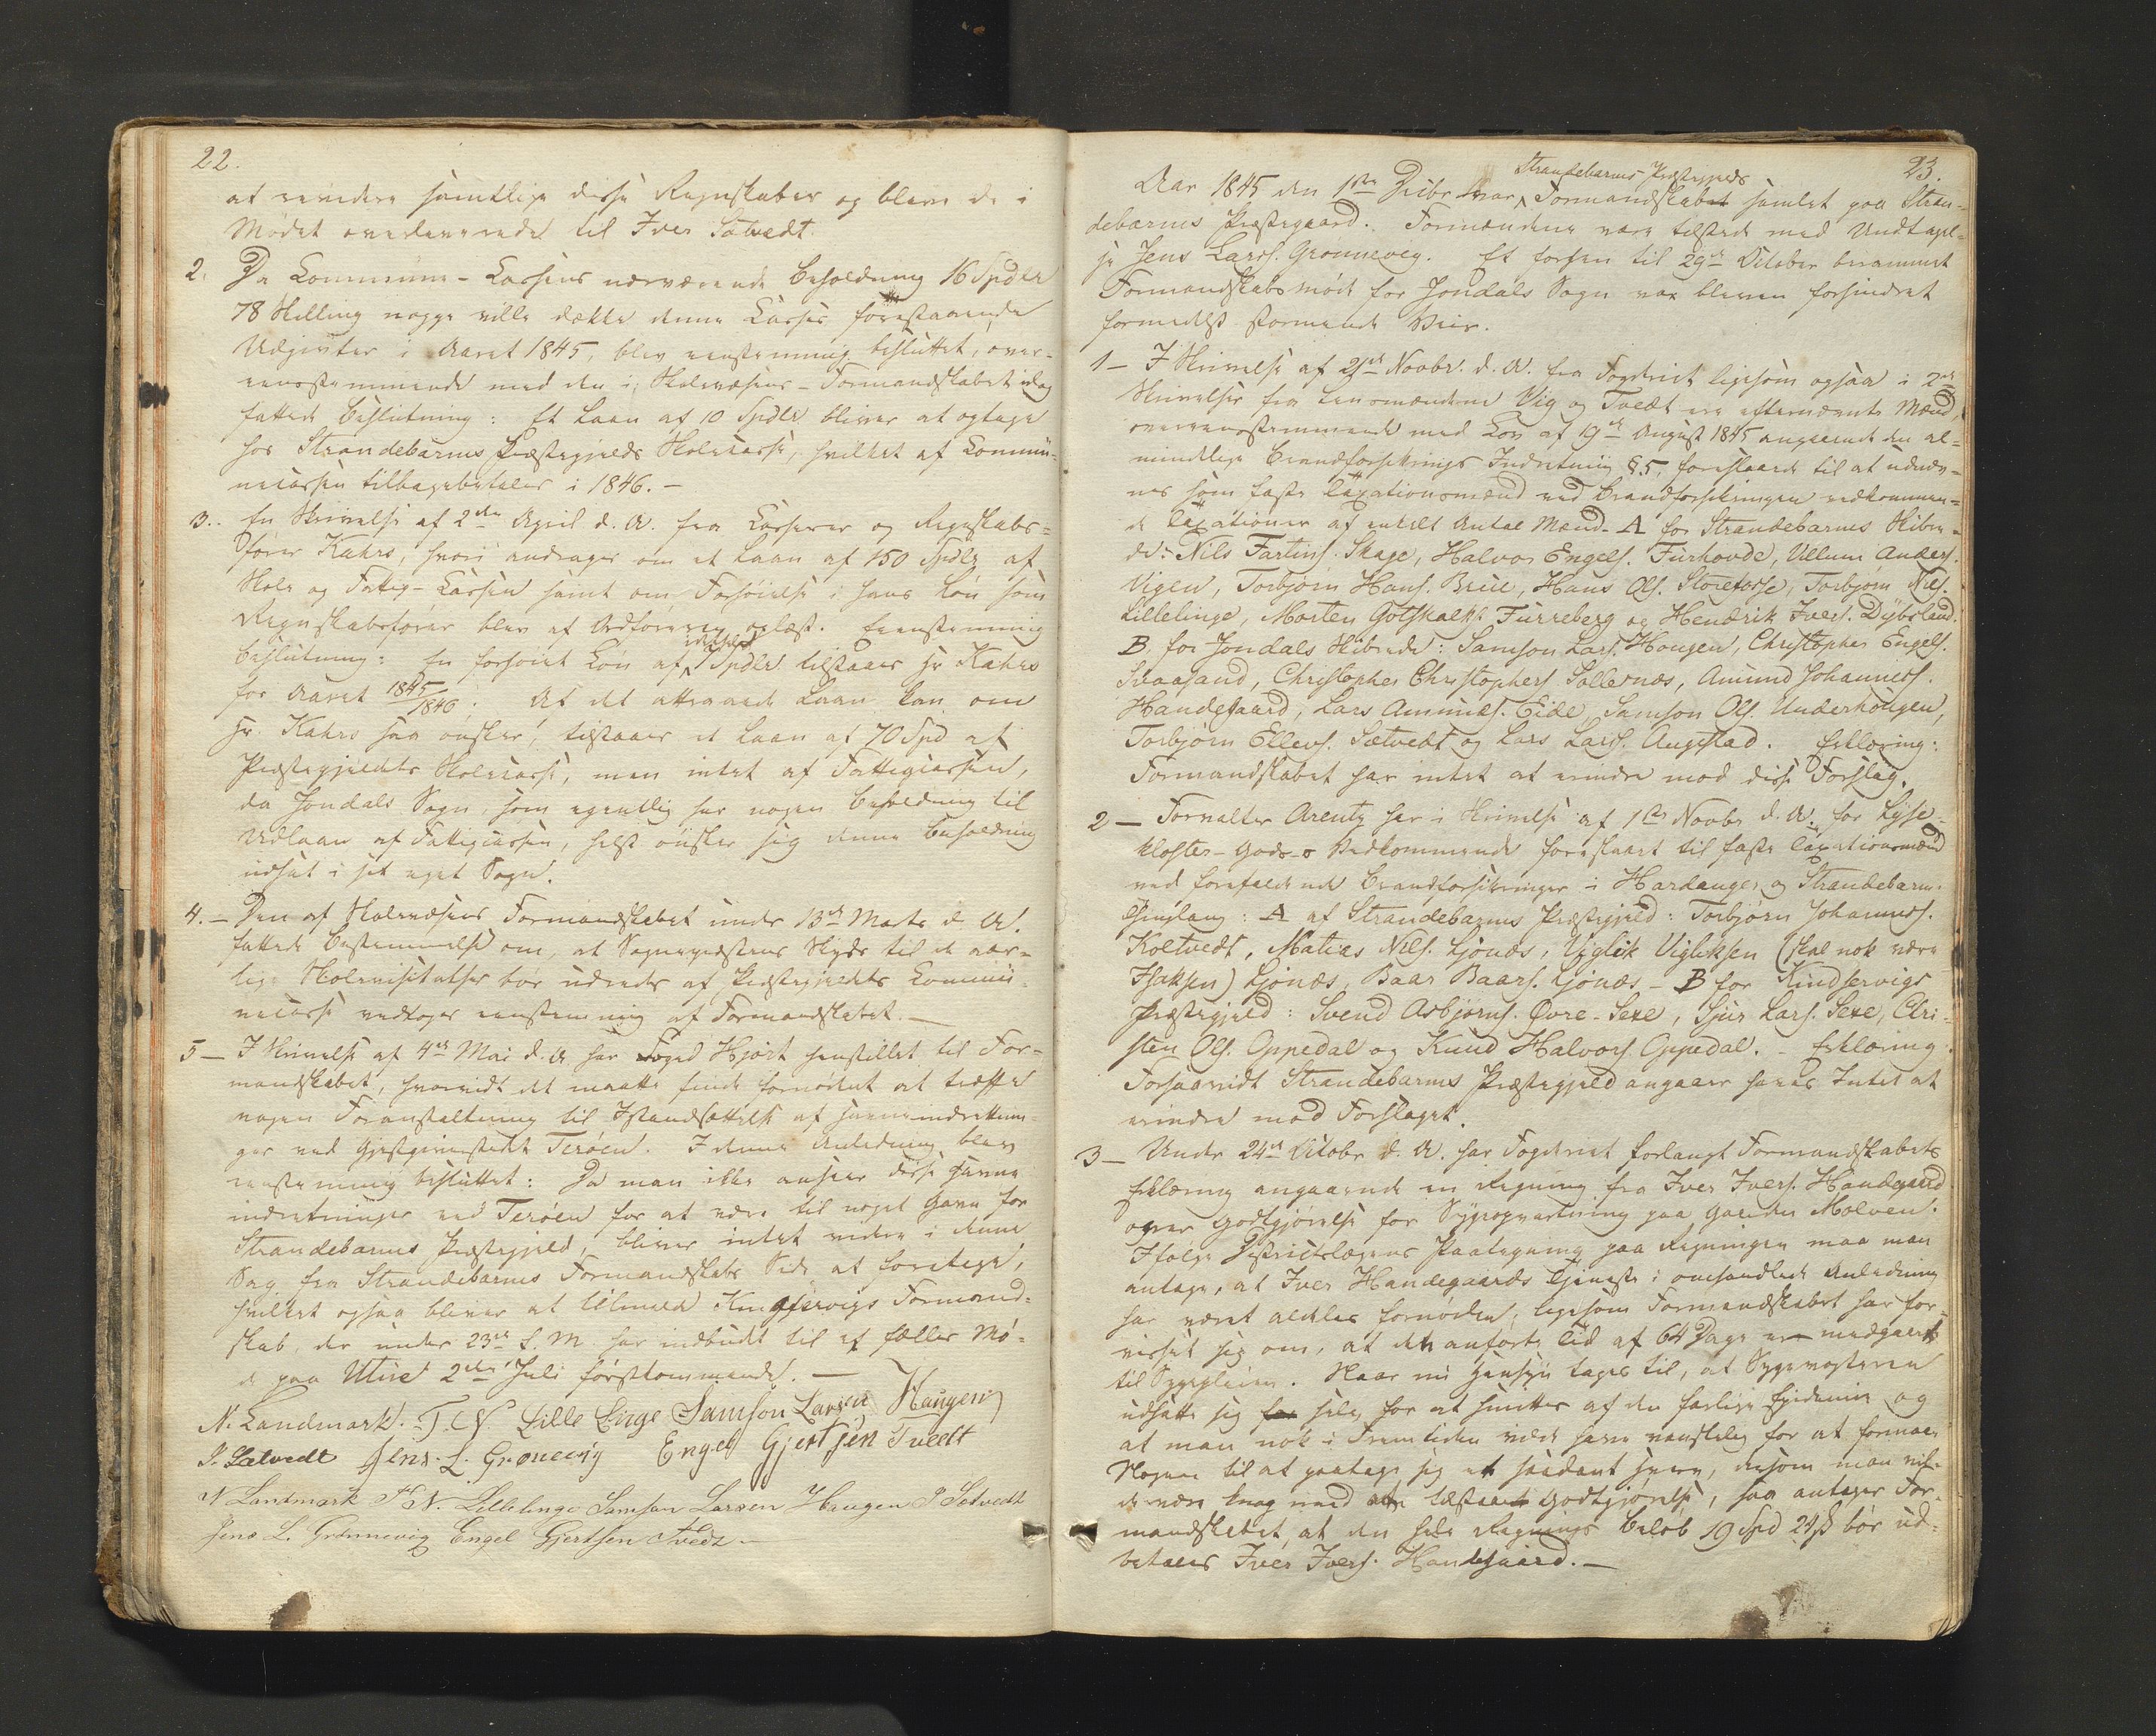 22.
at revidere samtlige disse Regnskaber og bleve de i
Mødet overleverede til Iver Sætvedt.
2. Da Commune-Cassens nærværende Beholdning 16 Spdlr
78 Skilling neppe ville dække denne Casses forestaaende
Udgivter i Aaret 1845, blev eenstemmig besluttet, over-
eensstemmende med den i Skolevæsens-Formandskabet idag
fattede Beslutning: Et Laan af 10 Spdlr bliver at optage
hos Strandebarms Præstegjelds Skolecasse, hvilket af Commu-
necassen tilbagebetales i 1846. —
3. En Skrivelse af 2den April d. A. fra Casserer og Regnskabs-
fører Kahrs, hvori andrages om et Laan af 150 Spdlr af
Skole og Fattig-Cassen samt om Forhøielse i hans Løn som
Regnskabsfører blev af Ordføreren oplæst. Eenstemmig
Beslutning: En forhøiet Løn af Spdlr tilstaaes Hr Kahrs
for Aaret 1845/1846. Af det attraaede Laan kan, om
Hr. Kahrs saa ønsker, tilstaaes et Laan af 70 Spd af
Præstegjeldets Skolecasse, men intet af Fattigcassen,
da Jondals Sogn, som egentlig har nogen Beholdning til
Udlaan af Fattigcassen, helst ønsker sig denne Beholdning
udsat i sit eget Sogn.
4. — Den af Skolevæsens Formandskabet under 13de Marts d. A.
fattede Bestemmelse om, at Sognepræstens Skyds til de aar-
lige Skolevisitatser bør udredes af Præstegjeldets Commu-
necasse vedtoges eenstemmig af Formandskabet. —
5 — I Skrivelse af 4de Mai d. A. har Foged Hjort henstillet til For-
mandskabet, hvorvidt det maatte finde fornødent at træffe
nogen Foranstaltning til Istandsættelse af Havneindretnin-
ger ved Gjæstgiverstedet Terøen. I denne Anledning blev
eenstemmig besluttet: Da man ikke anseer disse Havne
indretninger ved Terøen for at være til noget Gavn for
Strandebarms Præstegjeld, bliver intet videre i denne
Sag fra Strandebarms Formandskabs Side at foretage,
hvilket ogsaa bliver at tilmelde Kingservigs Formand-
skab, der under 23de f. M. har indbudt til et fælles Mø-
de paa Utne 2den Juli førstkommende. —
N. Landmark. T. N. Lille Linge Samson Larsen Haugen
I. Sætvedt Jens. L. Grønevig Engel Gjertsen Tvedt
N Landmark T. N. Lillelinge Samson Larsen Haugen I Setvedt
Jens L. Grønnevig Engel Gjertsen Tvedt —
23.
Strandebarms Præstegjelds
Aar 1845 den 1ste Decbr var Formandskabet samlet paa Stran-
debarms Præstegaard. Formændene vare tilstede med Undtagel-
se Jens Larss. Grønnevig. Et forhen til 29de October berammet
Formandskabsmøde for Jondals Sogn var bleven forhindret
formedelst stormende Veir.
1 — I Skrivelse af 21de Novbr. d. A. fra Fogderiet ligesom ogsaa i 2de
Skrivelser fra Lensmændene Vig og Tvedt ere efternævnte Mænd
overeensstemmende med Lov af 19de August 1845 angaaende den al-
mindelige Brandforsikrings Indretning §5, foreslaaede til at udnæv-
nes som faste Taxationsmænd ved Brandforsikringen vedkommen-
de Taxationer af enkelt Antal Mænd – A for Strandebarms Skibre-
de: Nils Fartins. Skage, Halvor Engels. Furhovde, Villum Anders.
Vigen, Torbjørn Hans. Brue, Hans Ols. Storetorse, Torbjørn Nils.
Lillelinge, Morten Gotskalks. Furreberg og Hendrik Ivers. Dybsland.
B, for Jondals Skibrede: Samson Lars. Hougen, Christopher Engels.
Svaasand, Christopher Christophers Sollesnæs, Amund Johanness.
Handegaard, Lars Ammunds. Eide, Samson Ols. Underhougen,
Torbjørn Ellevs. Sætvedt og Lars Lars. Augestad. Erklæring:
Formandskabet har intet at erindre mod disse Forslag.
2 — Forvalter Arentz har i Skrivelse af 1ste Novbr d. A. for Lyse-
kloster-Gods-s Vedkommende foreslaaet til faste Taxationsmænd
ved forefaldende Brandforsikringer i Hardanger og Strandebarm.
Thinglaug: A af Strandebarms Præstegjeld: Torbjørn Johanness.
Koltvedt, Matias Nils. Ljonæs, Viglik Vigliksen (skal nok være
Isaksen) Ljonæs, Baar Baars. Ljonæs – B for Kindservigs
Præstegjeld: Svend Asbjørns. Øvre-Sexe, Sjur Lars. Sexe, Chri-
sten Ols. Oppedal og Knud Halvors. Oppedal. – Erklæring.
Forsaavidt Strandebarms Præstegjeld angaaer haves Intet at
erindre mod Forslaget.
3 — Under 24de Octobr d. A. har Fogderiet forlangt Formandskabets
Erklæring angaaende en Regning fra Iver Ivers. Handegaard
over Godtgjørelse for Sygeopvartning paa Gaarden Molven.
Ifølge Districtslægens Paategning paa Regningen maa man
antage, at Iver Handegaards Tjeneste i omhandlede Anledning
har været aldeles fornøden, ligesom Formandskabet har for-
visset sig om, at den anførte Tid af 64 Dage er medgaaet
til Sygepleien. Naar nu Hensyn tages til, at Sygevogteren
udsatte sig selv for at smittes af den farlige Epidemie og
at man nok i Fremtiden vilde have vanskelig for at formaae
Nogen til at paatage sig et saadant Hverv, dersom man vil-
de være knap med Godtgjørelse, saa antager For-
mandskabet, at den hele Regnings Beløb 19 Spd 24 ß bør ud-
betales Iver Ivers. Handegaard. —